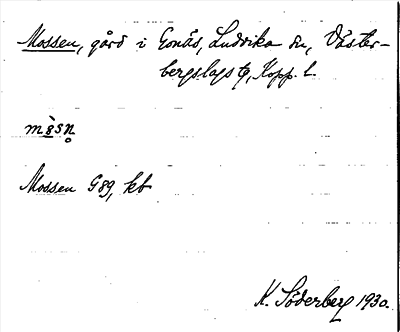 Mossen, gård i Gonäs, Ludvika sn, Väster-
bergslags tg, Kopp. l.
Mossen G89, kb
K. Söderberg 1930.